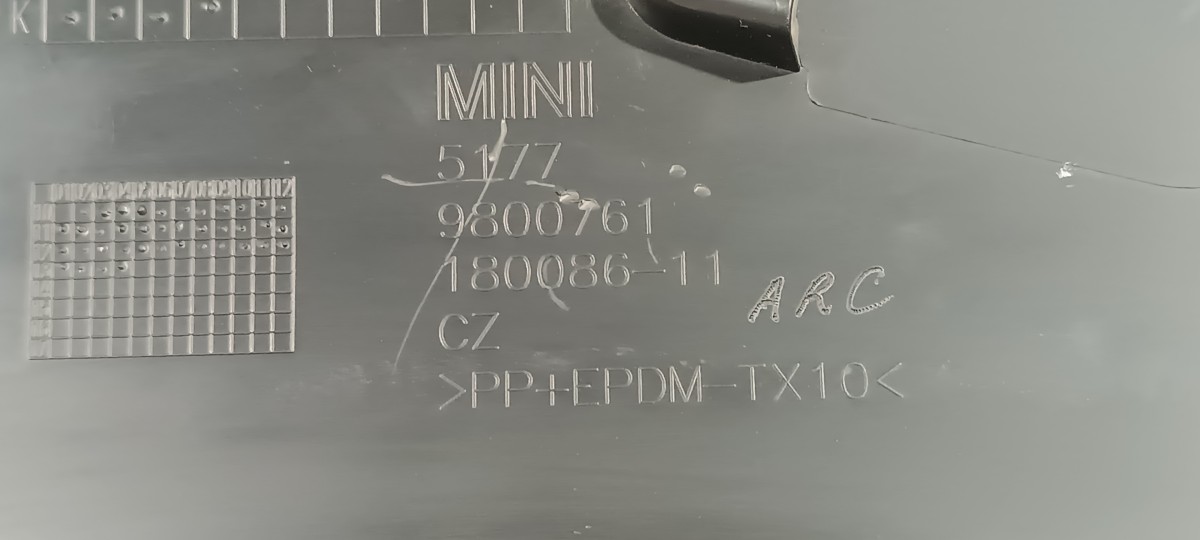 K
MINI
5177
01 02 03 04 05 06 07 08 09 10 11 12
9800761
180086-11
ARC
CZ
>PP+EPDM-TX10<